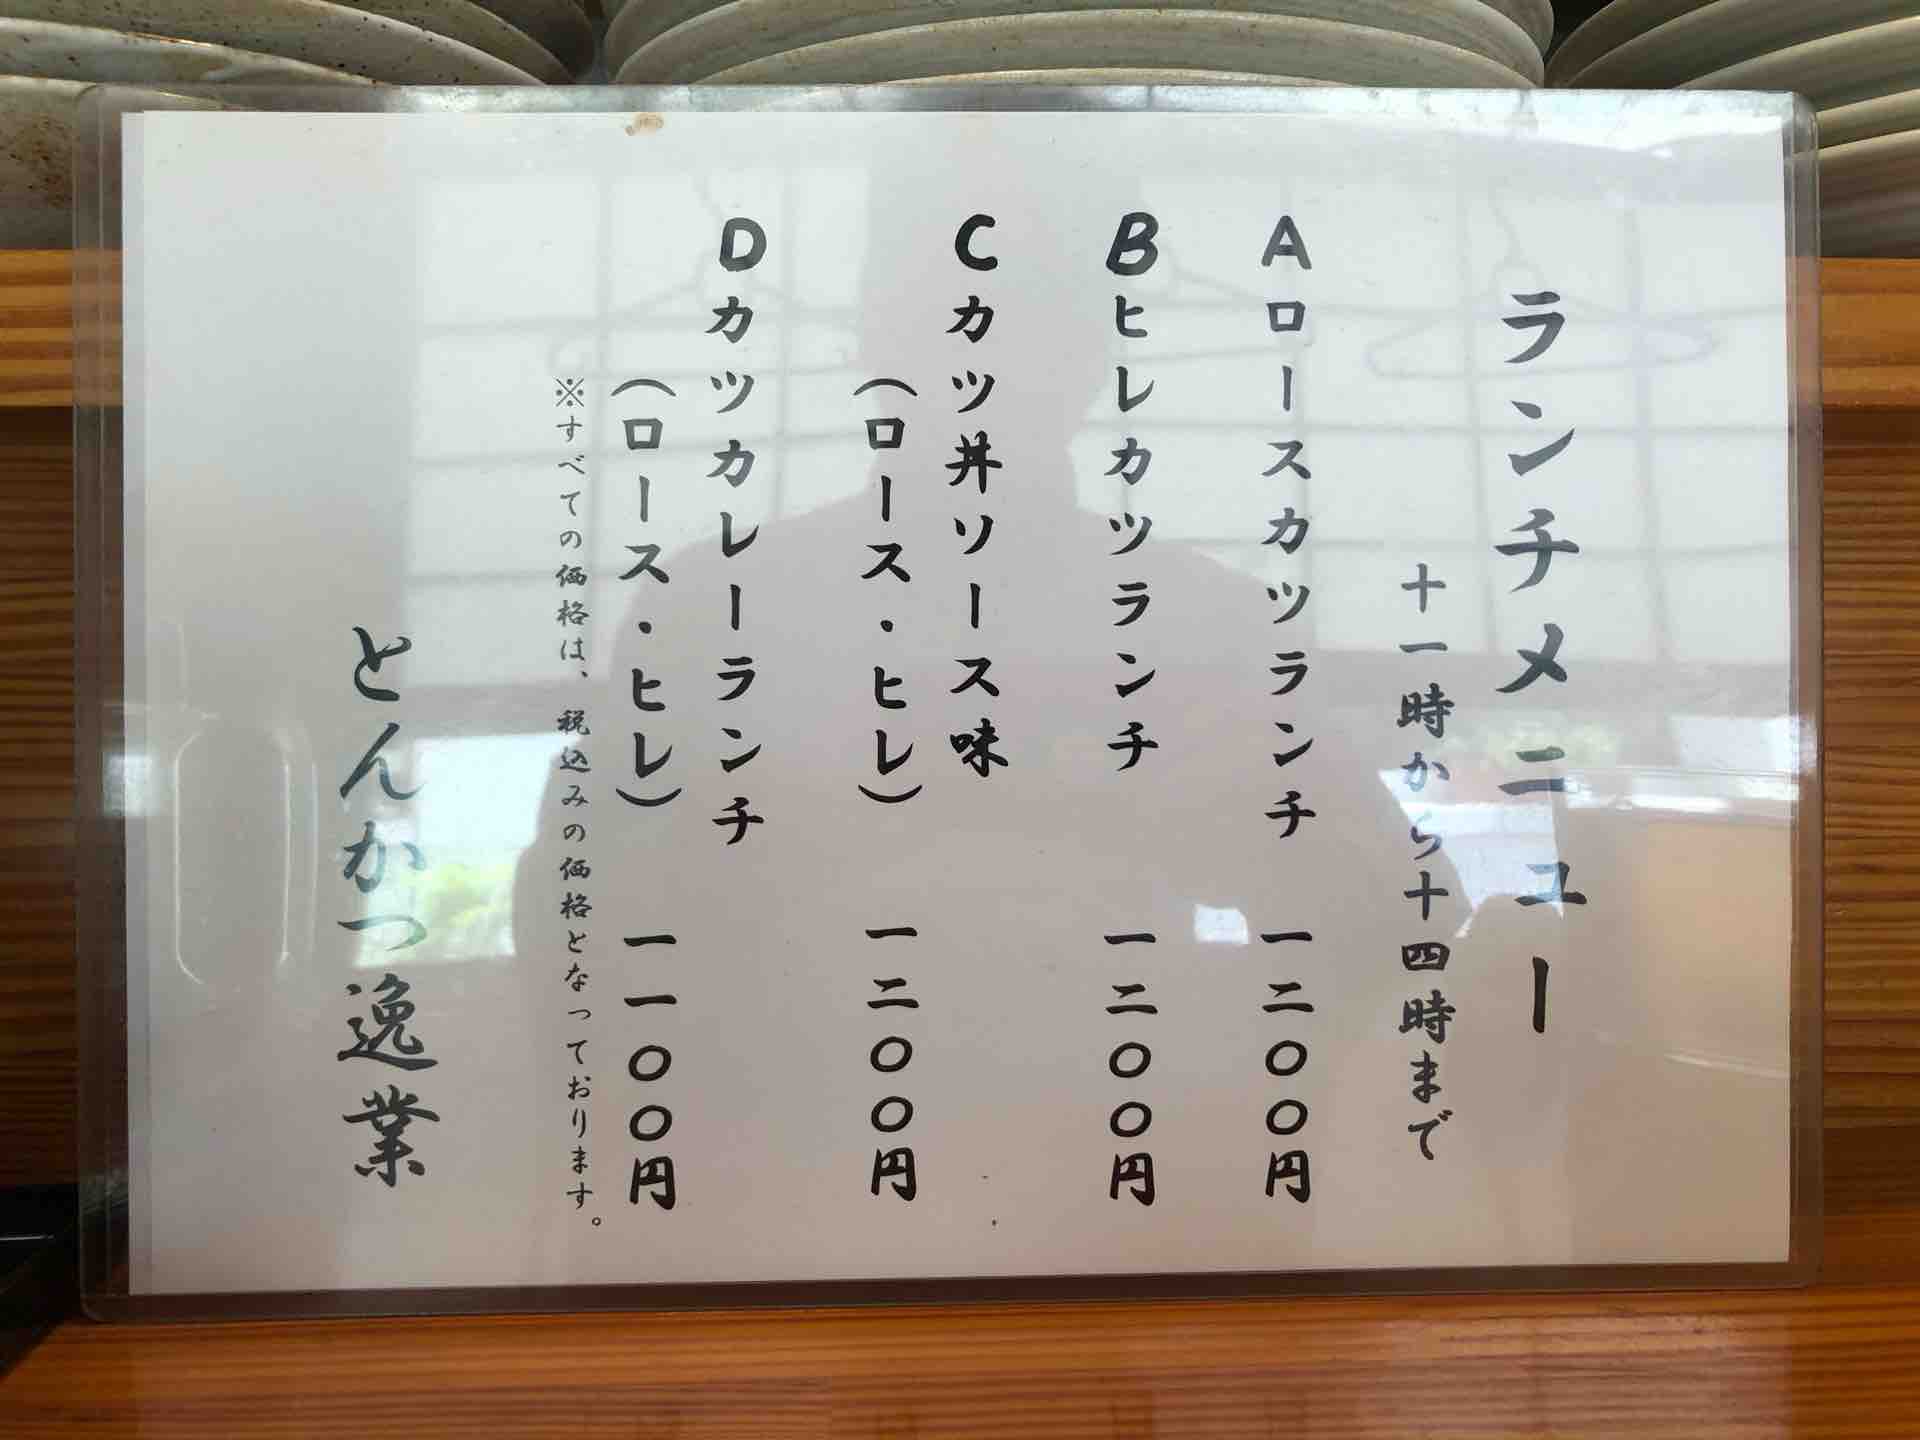 ランチメニュー
十一時から十四時まで
Aロースカツランチ 一二〇〇円
Bヒレカツランチ 一二〇〇円
Cカツ丼ソース味
（ロース・ヒレ） 一二〇〇円
Dカツカレーランチ
（ロース・ヒレ） 一一〇〇円
※すべての価格は、税込みの価格となっております。
とんかつ逸業